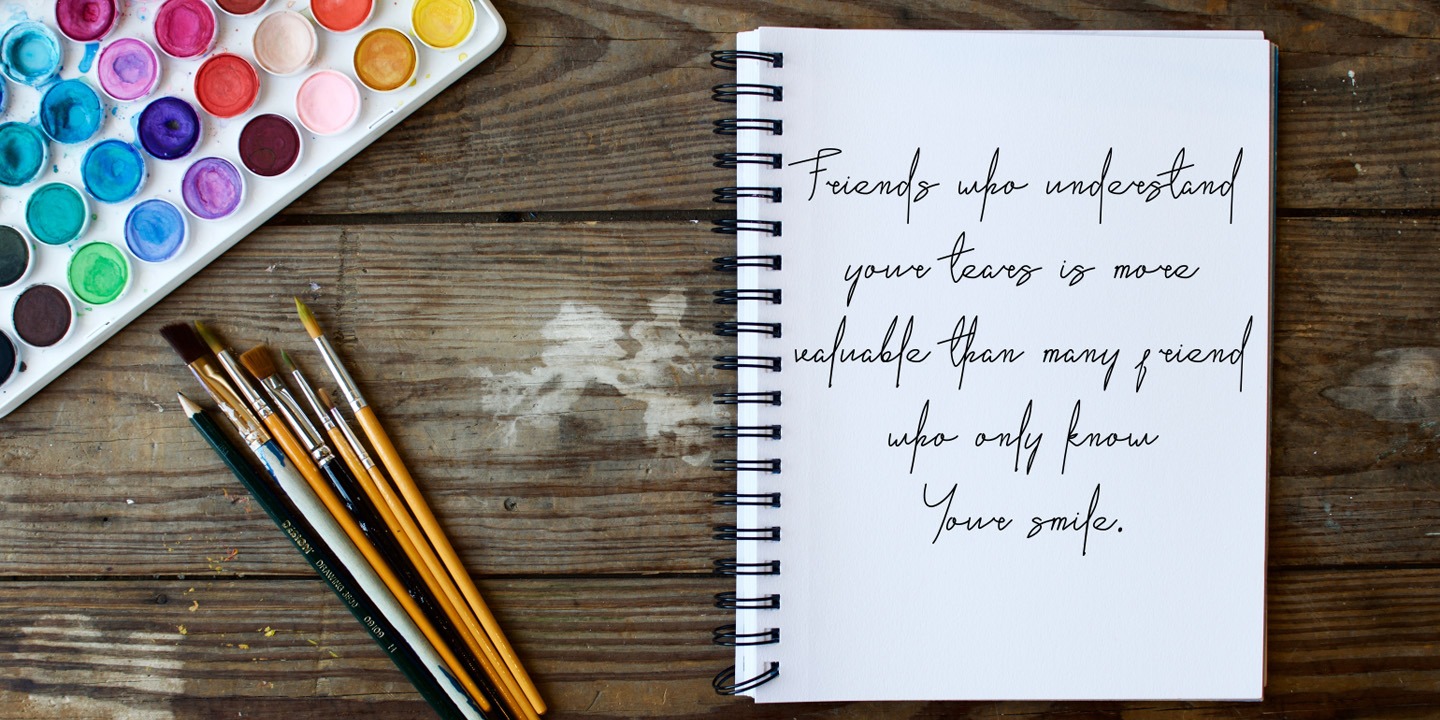 Friends who understand
your tears is more
valuable than many friend
who only know
Your smile.
DESIGN DRAWING 3800